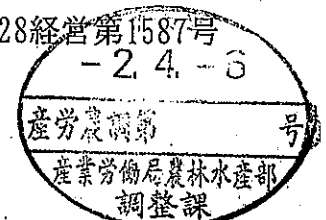 28経営第1587号
-2.4.-6
産労農調第 号
産業労働局農林水産部
調整課